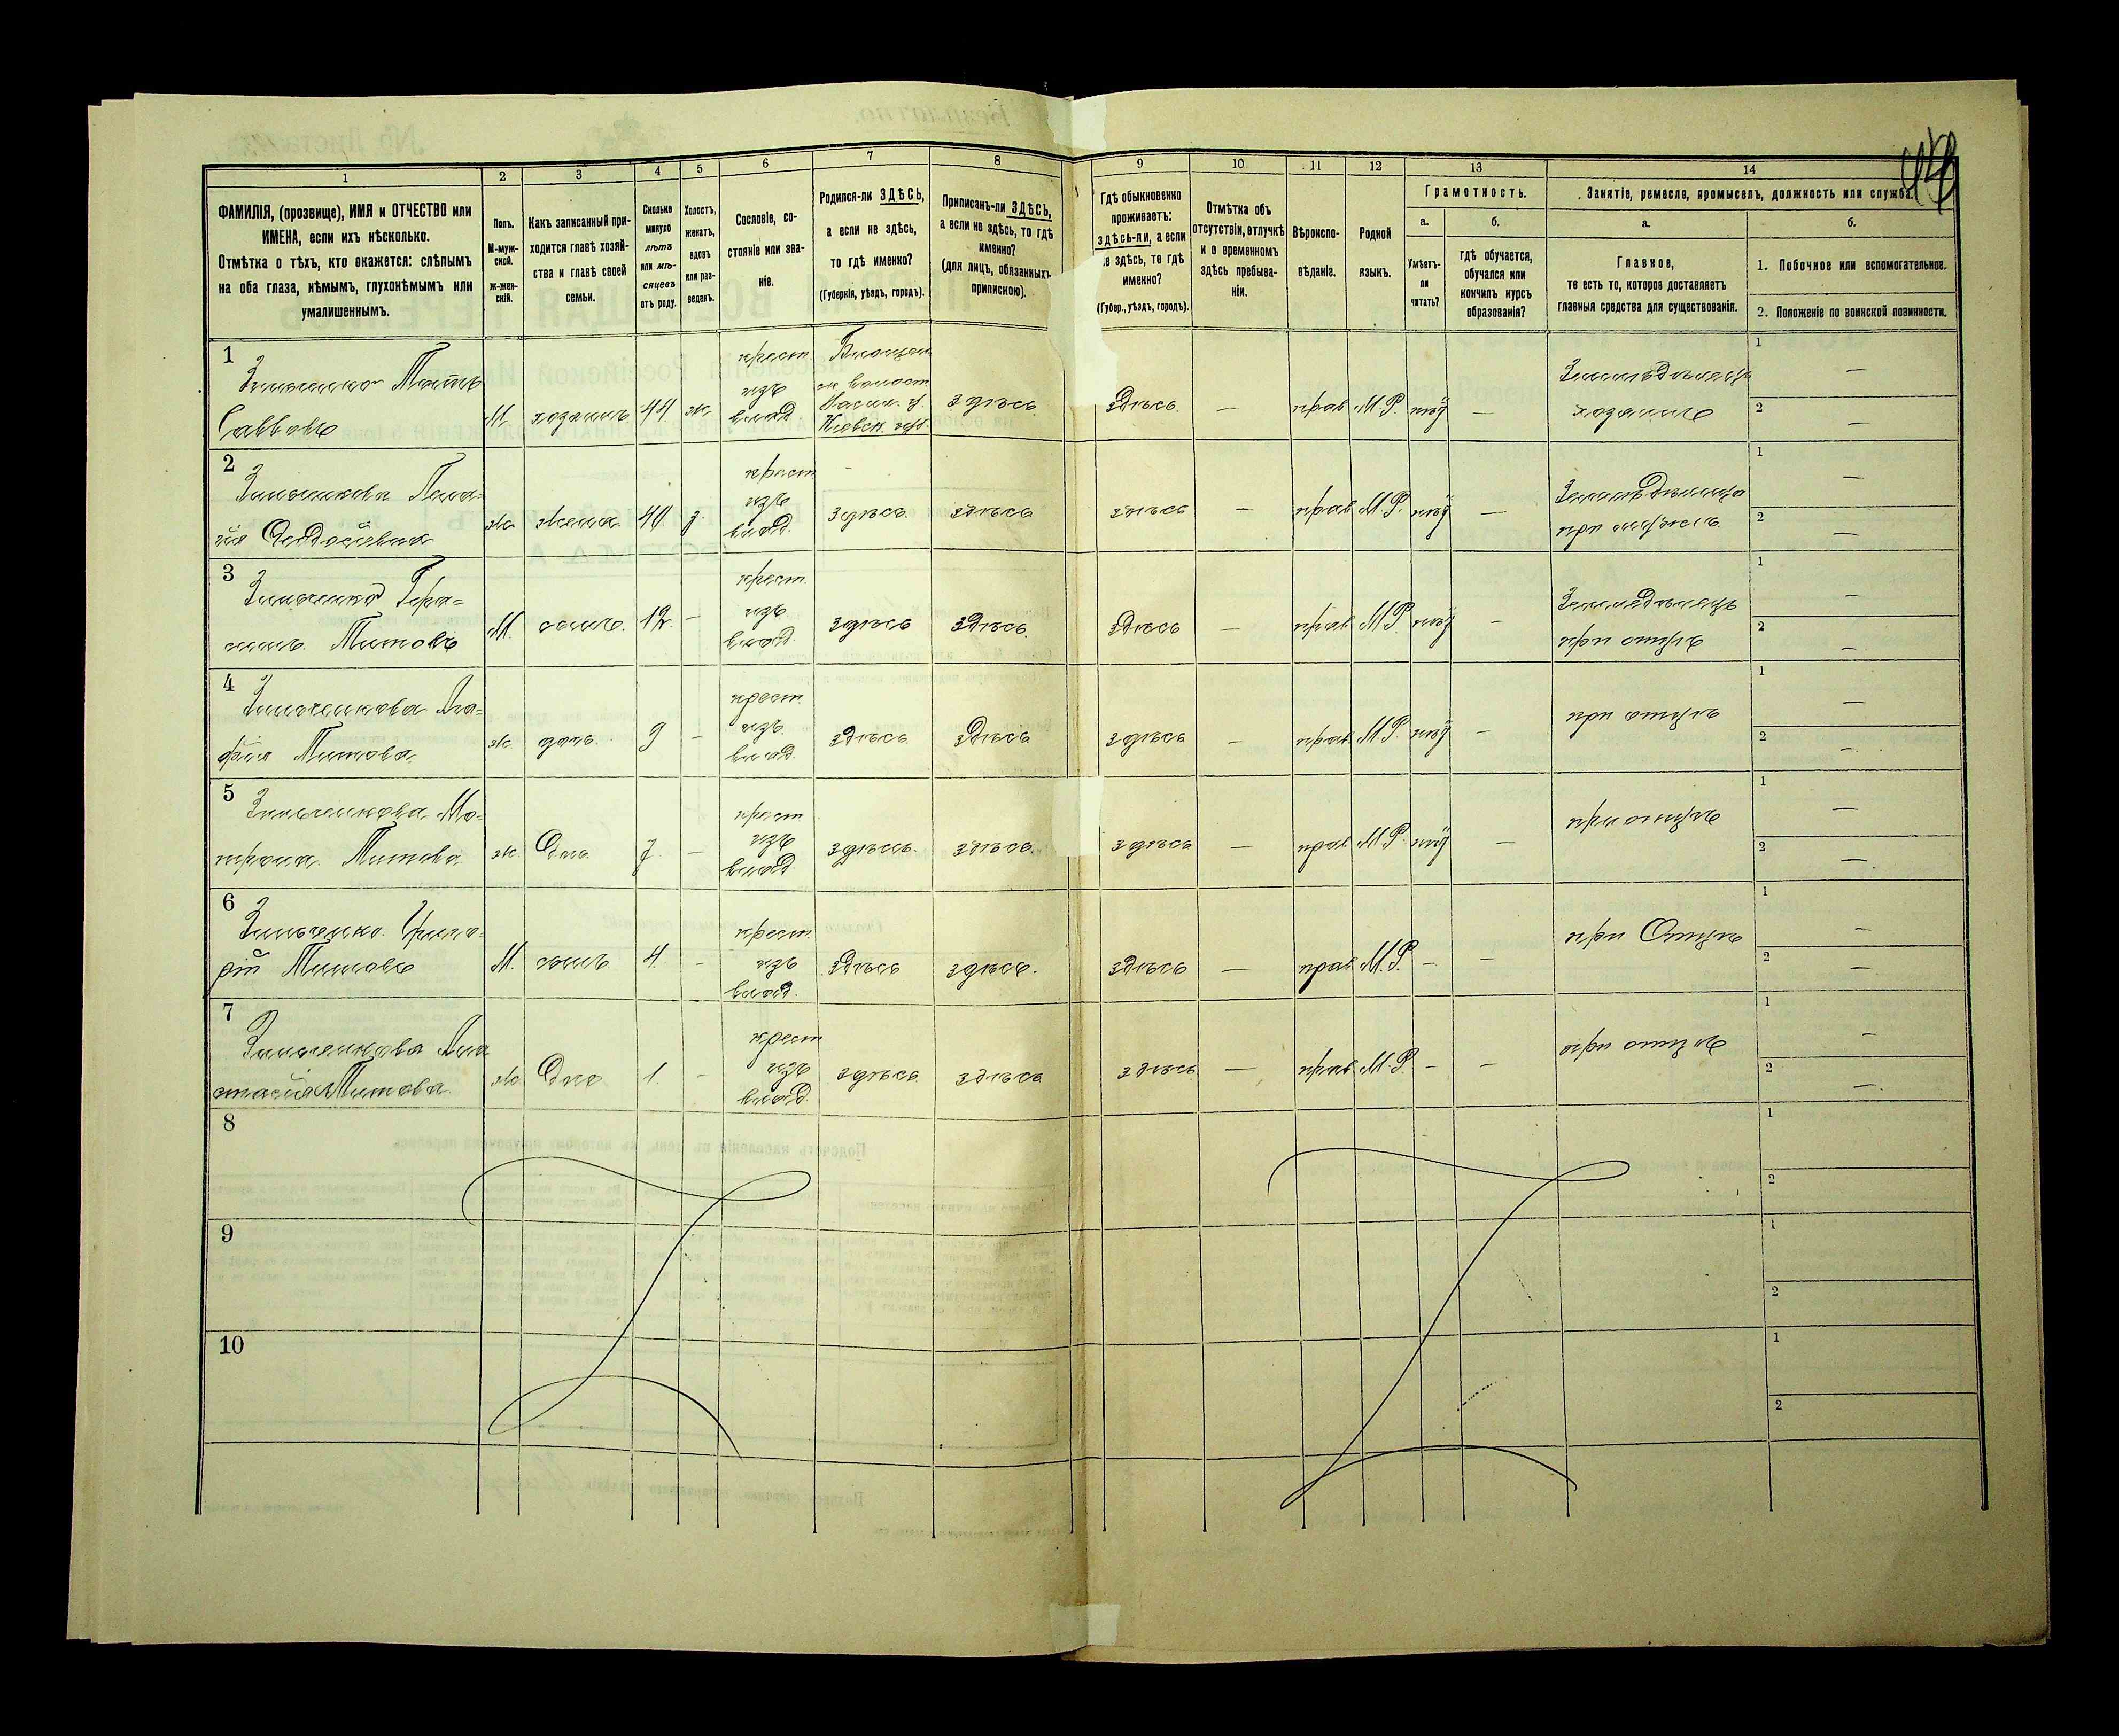 1 2 3 4 5 6 7 8 9 10 11 12 13 14
ФАМИЛІЯ, (прозвище), ИМЯ и ОТЧЕСТВО или
ИМЕНА, если ихъ нѣсколько.
Отмѣтка о тѣхъ, кто окажется: слѣпымъ
на оба глаза, нѣмымъ, глухонѣмымъ или
умалишеннымъ.
Полъ.
М-муж-
ской.
Ж-жен-
скій.
Какъ записанный при-
ходится главѣ хозяй-
ства и главѣ своей
семьи.
Сколько
минуло
лѣтъ
или мѣ-
сяцевъ
отъ роду.
Холостъ,
женатъ,
вдовъ
или раз-
веденъ.
Сословіе, со-
стояніе или зва-
ніе.
Родился-ли ЗДѢСЬ,
а если не здѣсь,
то гдѣ именно?
(Губернія, уѣздъ, городъ).
Приписанъ-ли ЗДѢСЬ,
а если не здѣсь, то гдѣ
именно?
(для лицъ, обязанныхъ
припискою).
Гдѣ обыкновенно
проживаетъ:
здѣсь-ли, а если
не здѣсь, то гдѣ
именно?
(Губер., уѣздъ, городъ).
Отмѣтка объ
отсутствіи, отлучкѣ
и о временномъ
здѣсь пребыва-
ніи.
Вѣроиспо-
вѣданіе.
Родной
языкъ.
Грамотность.
а.
Умѣетъ-
ли
читать?
б.
гдѣ обучается,
обучался или
кончилъ курсъ
образованія?
Занятіе, ремесло, промыселъ, должность или служба.
а.
Главное,
то есть то, которое доставляетъ
главныя средства для существованія.
б.
1. Побочное или вспомогательное.
2. Положеніе по воинской повинности.
1
Зинченко Титъ
Саввовъ
М. хозяинъ 44 ж.
крест.
изъ
влад.
волост.
Васил. у.
Кіевск. губ.
здѣсь
здѣсь — прав. М.Р. нѣт —
Земледѣлецъ
хозяинъ
1 —
2 —
2
Зинченкова Пела-
гія Феодосіевна
ж. жена 40 з.
крест
изъ
влад.
здѣсь здѣсь
здѣсь — прав М.Р. нѣт —
Земледѣлица
при мужѣ
1 —
2 —
3
Зинченко Гера-
симъ Титовъ
М. сынъ. 12. —
крест.
изъ
влад.
здѣсь здѣсь
здѣсь — прав М.Р. нѣт —
Земледѣлецъ
при отцѣ
1 —
2 —
4
Зинченкова Ага-
фія Титова
ж. дочь. 9 —
крест.
изъ
влад.
здѣсь здѣсь
здѣсь — прав М.Р. нѣт —
при отцѣ
1 —
2 —
5
Зинченкова Ма-
трона Титова
ж. Дочь 7. —
крест
изъ
влад
здѣсь здѣсь
здѣсь — прав М.Р. нѣт —
при отцѣ
1 —
2 —
6
Зинченко Григо-
рій Титовъ
М. сынъ 4. —
крест.
изъ
влад.
здѣсь здѣсь.
здѣсь — прав М.Р. — —
при Отцѣ
1 —
2 —
7
Зинченкова Ана
стасія Титова.
ж Дочь 1. —
крест
изъ
влад.
здѣсь здѣсь
здѣсь — прав М.Р. — —
при отцѣ
1 —
2 —
8
1
2
9
1
2
10
1
2